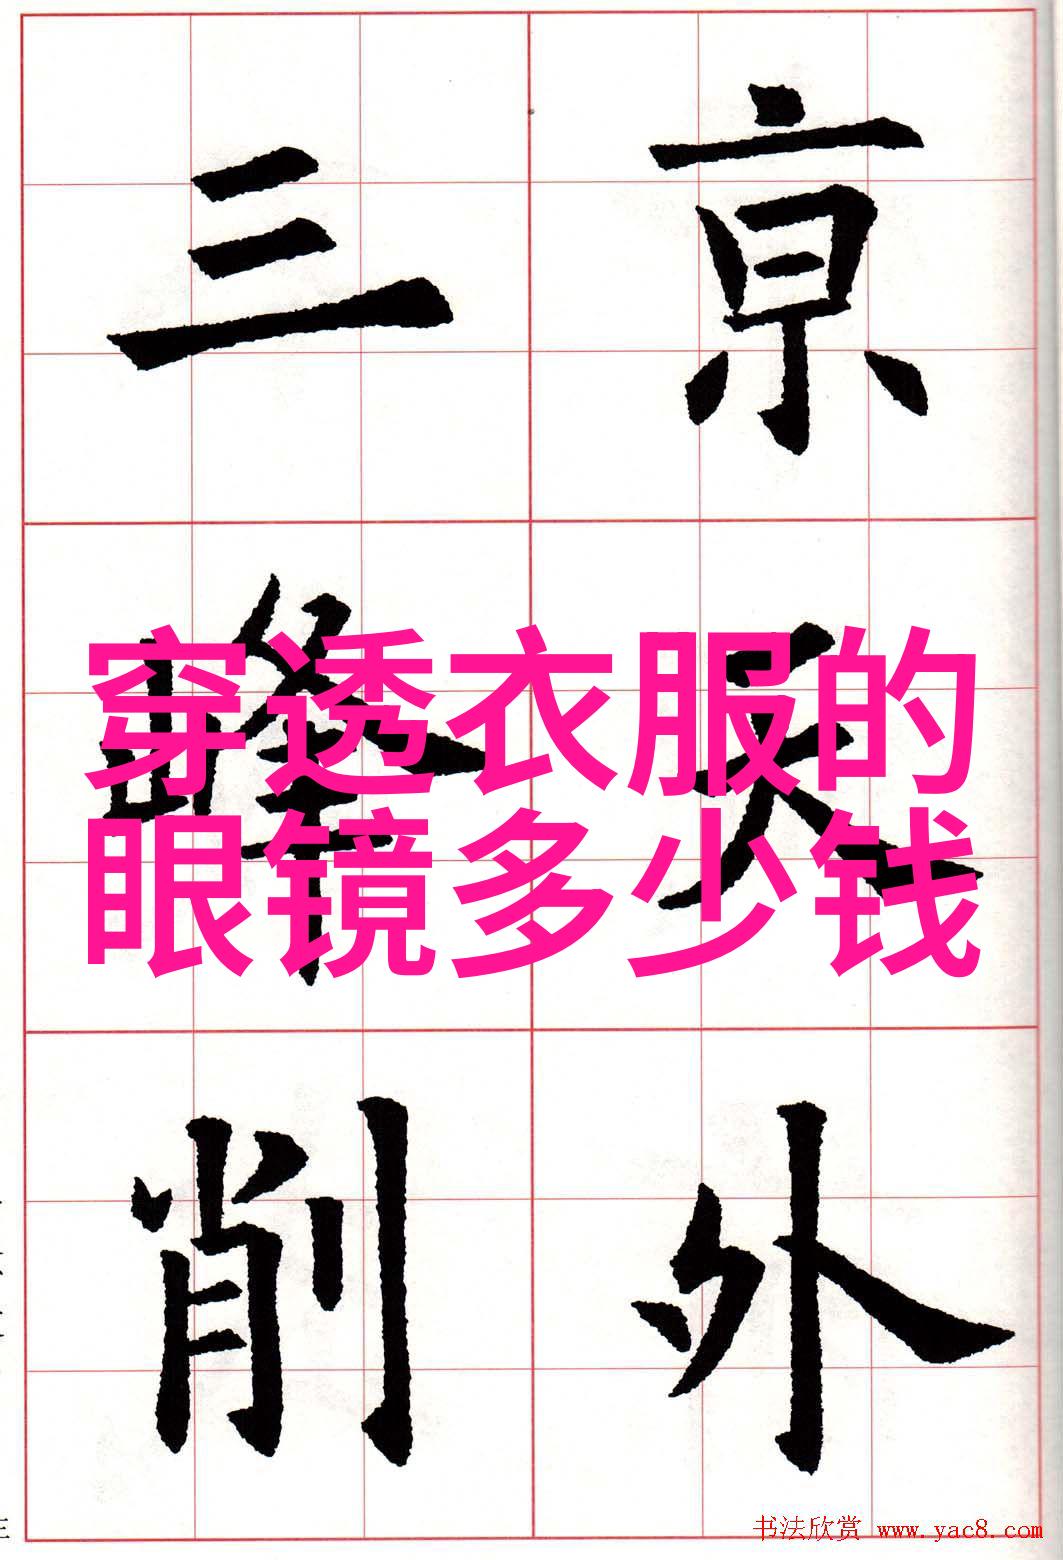 亰天外
三峰削
穿透衣服的
眼镜多少钱
书法欣赏 www.yac8.com